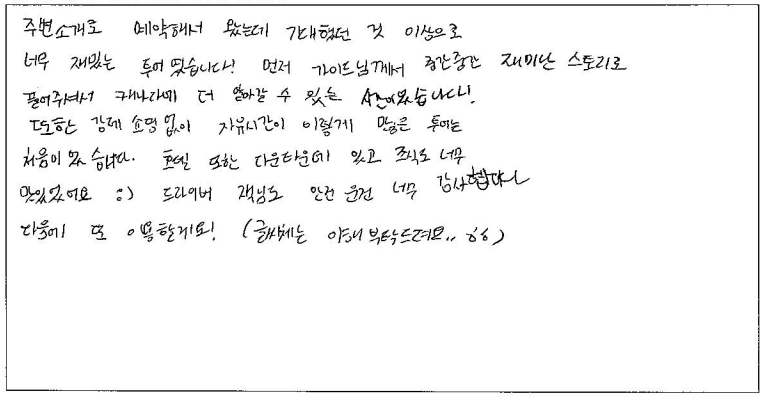 주변소개로 예약해서 왔는데 기대했던 것 이상으로
너무 재밌는 투어 였습니다! 먼저 가이드님께서 중간중간 재미난 스토리로
풀어주셔서 캐나다에 더 알아갈 수 있는 시간이였습니다!
또한 강제 쇼핑 없이 자유시간이 이렇게 많은 투어는
처음이였습니다. 호텔 또한 다운타운에 있고 조식도 너무
맛있었어요 :) 드라이버 잭님도 안전 운전 너무 감사합니다
다음에 또 이용할게요! (글씨체는 이해 부탁드려요.. ㅎㅎ)